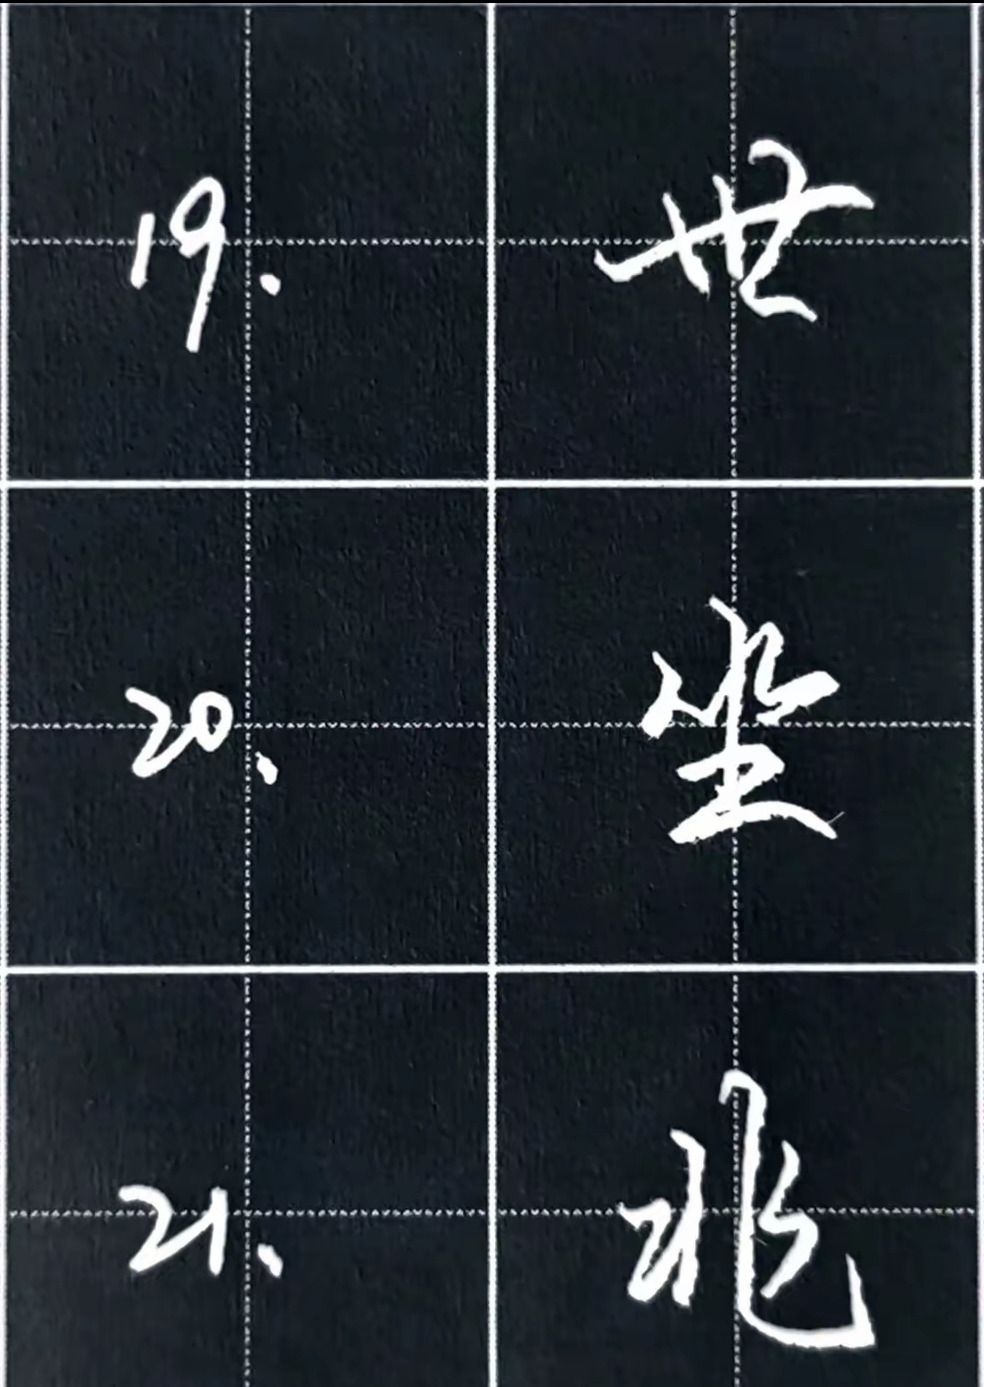 19. 世
20. 坐
21. 兆